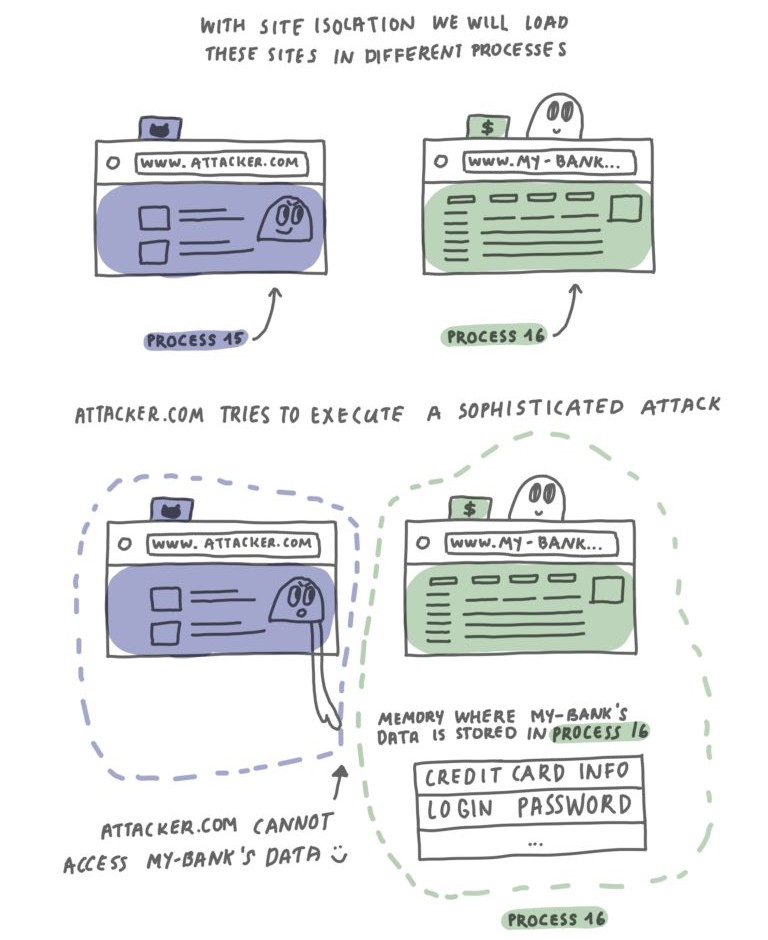 WITH SITE ISOLATION WE WILL LOAD
THESE SITES IN DIFFERENT PROCESSES
$
WWW. ATTACKER.COM
WWW.MY-BANK...
PROCESS 15
PROCESS 16
ATTACKER.COM TRIES TO EXECUTE A SOPHISTICATED ATTACK
$
WWW. ATTACKER.COM
WWW.MY-BANK...
MEMORY WHERE MY-BANK'S
DATA IS STORED IN PROCESS 16
CREDIT CARD INFO
LOGIN PASSWORD
...
ATTACKER.COM CANNOT
ACCESS MY-BANK'S DATA
PROCESS 16